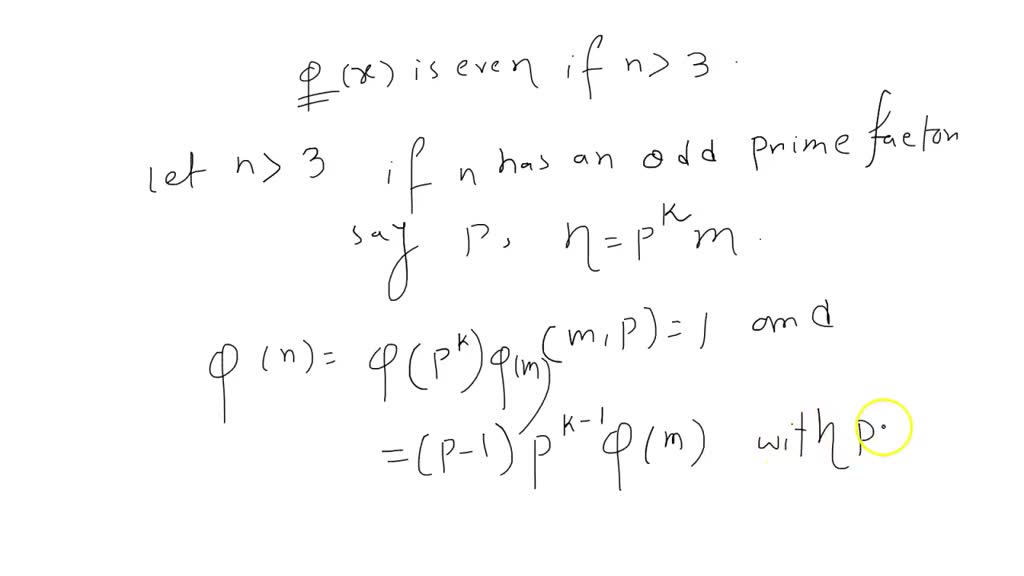 φ(x) is even if n > 3.
Let n > 3 if n has an odd prime factor
say p, n = p^k m.
φ(n) = φ(p^k) φ(m) (m, p) = 1 and
= (p-1) p^{k-1} φ(m) with p